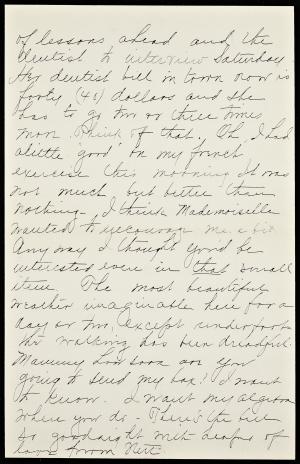 of lessons ahead and the
dentist to interview Saturday.
Her dentist bill in town now is
forty (40) dollars and she
has to go two or three times
more. Think of that. Oh, I had
a little "good" on my french
exercise this morning. It was
not much but better than
nothing. I think Mademoiselle
wanted to encourage me a bit.
Anyway I thought you'd be
interested even in that small
item. The most beautiful
weather imaginable here for a
day or two, except underfoot
the walking has been dreadful.
Mammy how soon are you
going to send my box? I want
to know. I want my
where you do - There's the bell
so goodnight with heaps of
love from